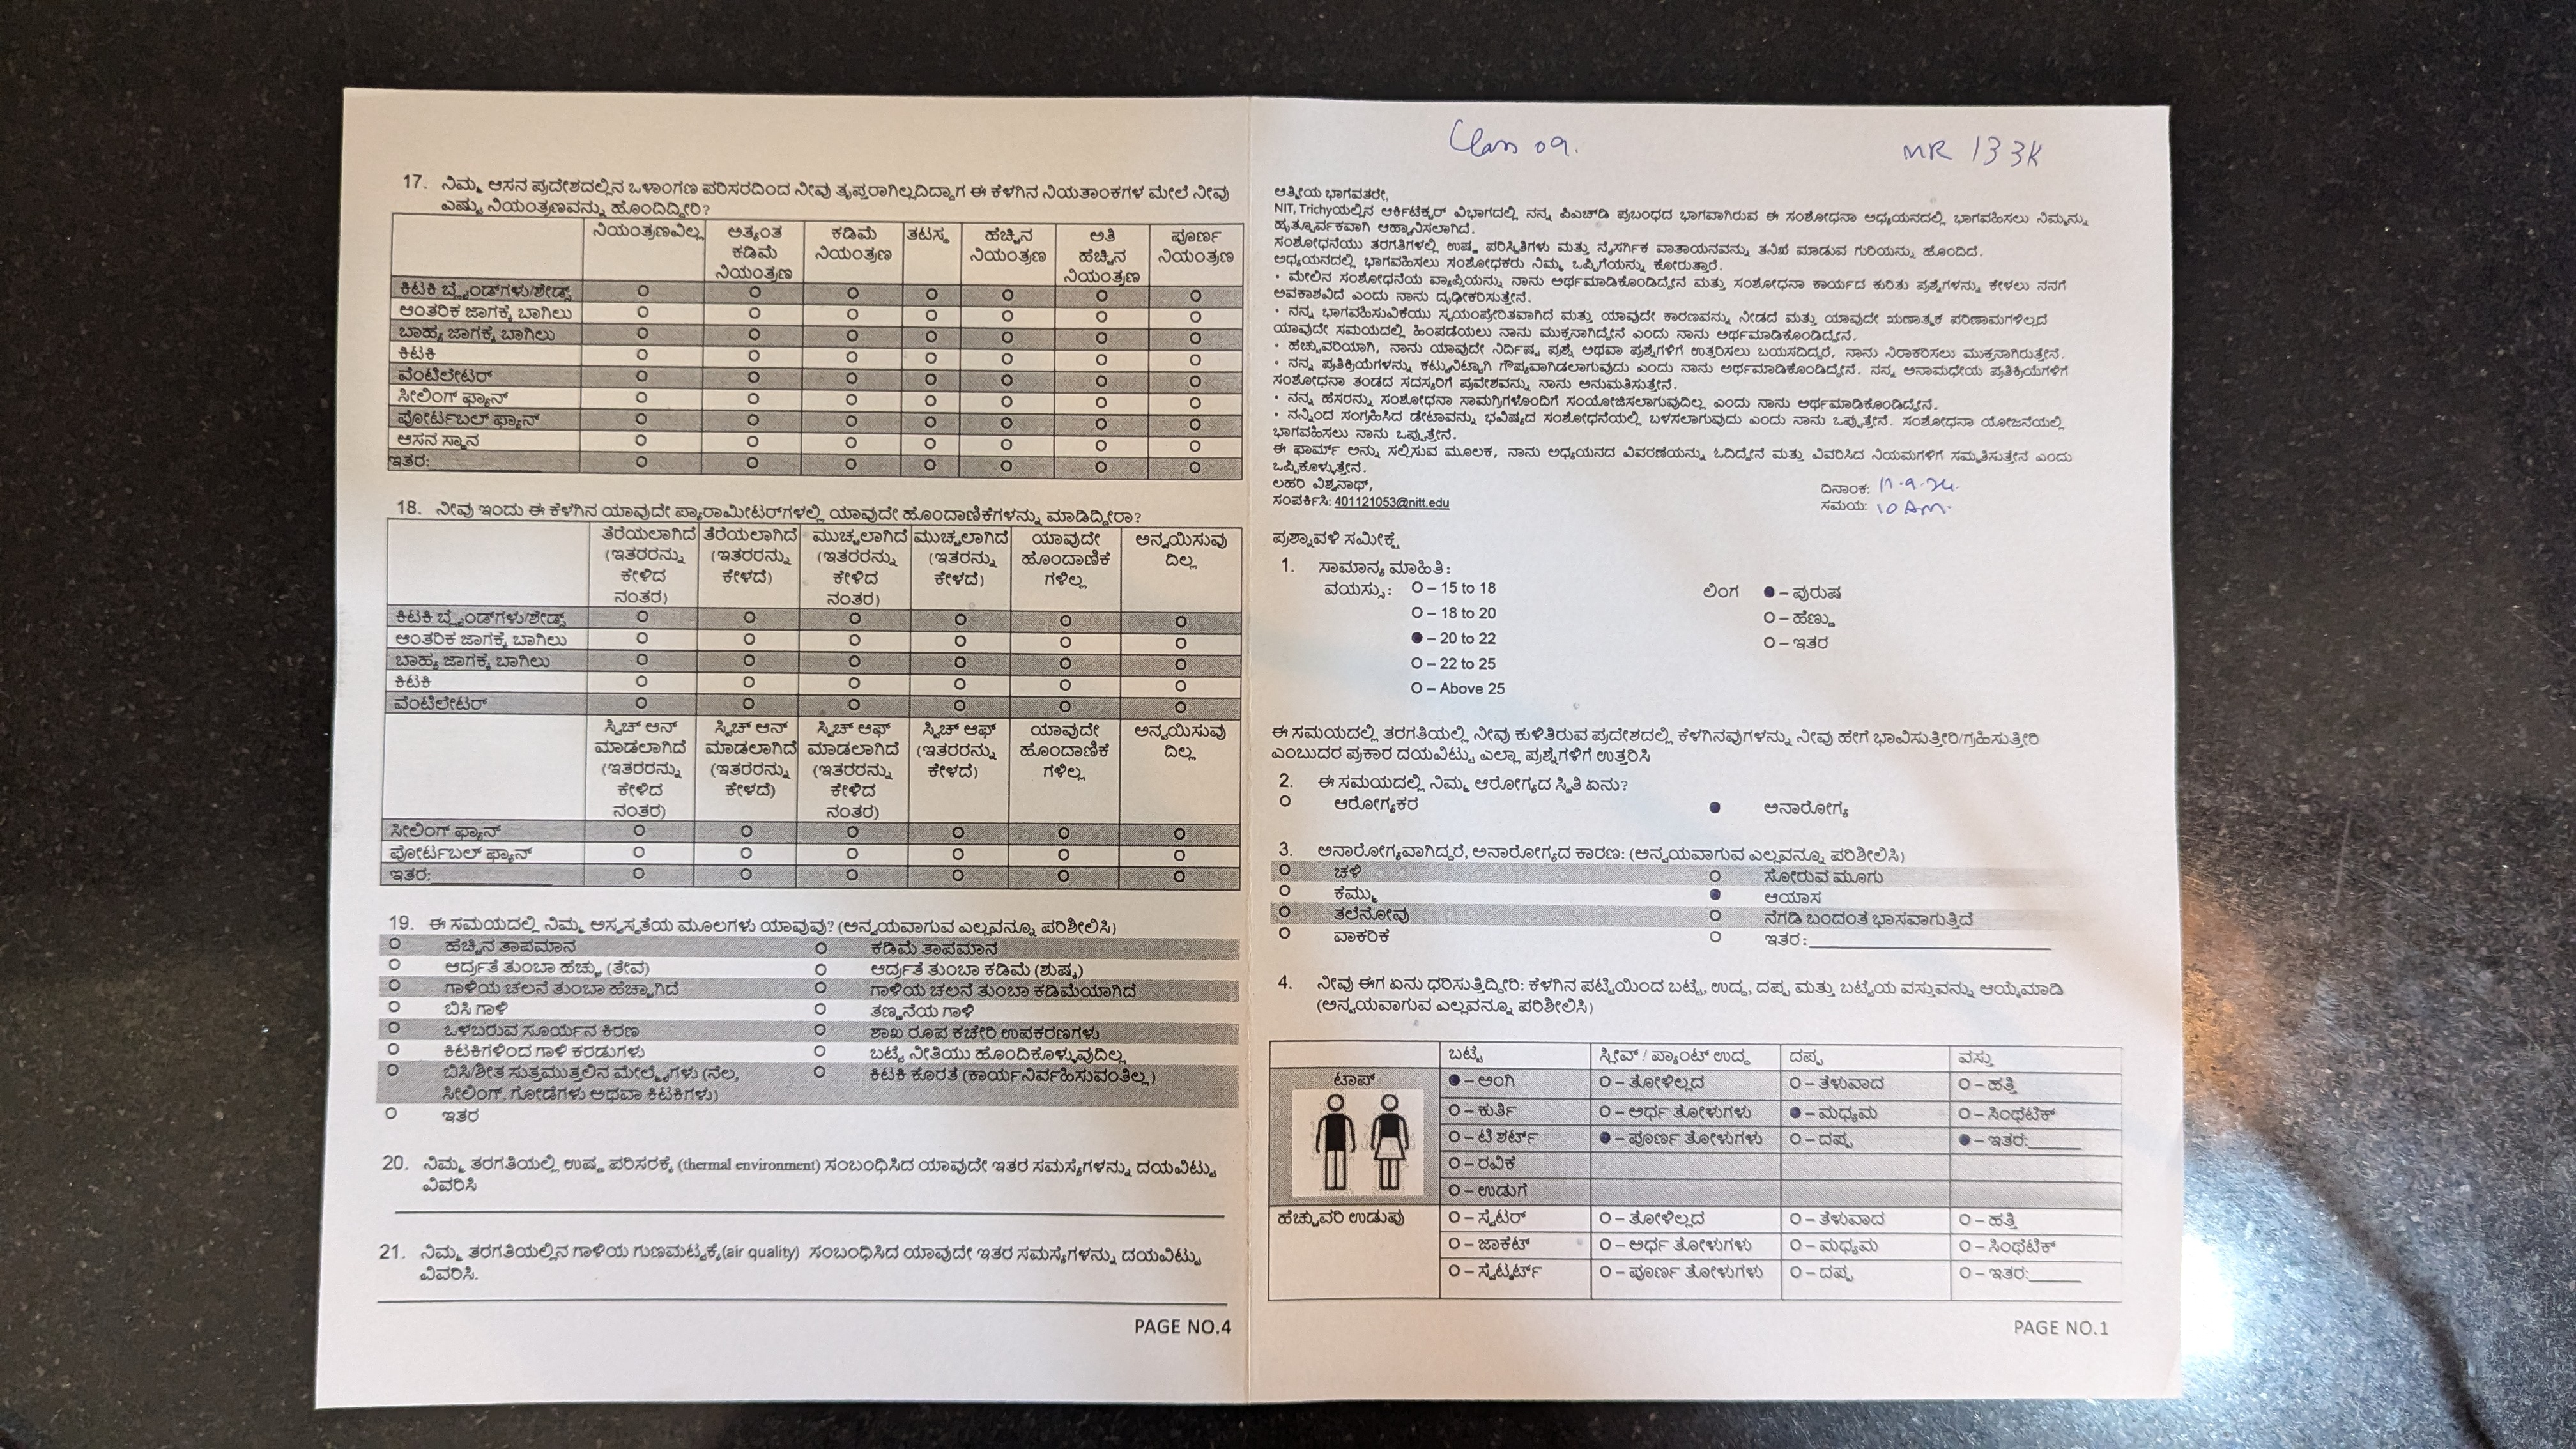 17. ನಿಮ್ಮ ಆಸನ ಪ್ರದೇಶದಲ್ಲಿನ ಒಳಾಂಗಣ ಪರಿಸರದಿಂದ ನೀವು ತೃಪ್ತರಾಗಿಲ್ಲದಿದ್ದಾಗ ಈ ಕೆಳಗಿನ ನಿಯತಾಂಕಗಳ ಮೇಲೆ ನೀವು
ಎಷ್ಟು ನಿಯಂತ್ರಣವನ್ನು ಹೊಂದಿದ್ದೀರಿ?
ನಿಯಂತ್ರಣವಿಲ್ಲ ಅತ್ಯಂತ ಕಡಿಮೆ ತಟಸ್ಥ ಹೆಚ್ಚಿನ ಅತಿ ಪೂರ್ಣ
ಕಡಿಮೆ ನಿಯಂತ್ರಣ ನಿಯಂತ್ರಣ ಹೆಚ್ಚಿನ ನಿಯಂತ್ರಣ
ನಿಯಂತ್ರಣ ನಿಯಂತ್ರಣ
ಕಿಟಕಿ ಬ್ಲೈಂಡ್‌ಗಳು/ಶೇಡ್ಸ್
ಆಂತರಿಕ ಜಾಗಕ್ಕೆ ಬಾಗಿಲು
ಬಾಹ್ಯ ಜಾಗಕ್ಕೆ ಬಾಗಿಲು
ಕಿಟಕಿ
ವೆಂಟಿಲೇಟರ್
ಸೀಲಿಂಗ್ ಫ್ಯಾನ್
ಪೋರ್ಟಬಲ್ ಫ್ಯಾನ್
ಆಸನ ಸ್ಥಾನ
ಇತರ:
18. ನೀವು ಇಂದು ಈ ಕೆಳಗಿನ ಯಾವುದೇ ಪ್ಯಾರಾಮೀಟರ್‌ಗಳಲ್ಲಿ ಯಾವುದೇ ಹೊಂದಾಣಿಕೆಗಳನ್ನು ಮಾಡಿದ್ದೀರಾ?
ತೆರೆಯಲಾಗಿದೆ ತೆರೆಯಲಾಗಿದೆ ಮುಚ್ಚಲಾಗಿದೆ ಮುಚ್ಚಲಾಗಿದೆ ಯಾವುದೇ ಅನ್ವಯಿಸುವು
(ಇತರರನ್ನು (ಇತರರನ್ನು (ಇತರರನ್ನು (ಇತರನ್ನು ಹೊಂದಾಣಿಕೆ ದಿಲ್ಲ
ಕೇಳಿದ ಕೇಳದೆ) ಕೇಳಿದ ಕೇಳದೆ) ಗಳಿಲ್ಲ
ನಂತರ) ನಂತರ)
ಕಿಟಕಿ ಬ್ಲೈಂಡ್‌ಗಳು/ಶೇಡ್ಸ್
ಆಂತರಿಕ ಜಾಗಕ್ಕೆ ಬಾಗಿಲು
ಬಾಹ್ಯ ಜಾಗಕ್ಕೆ ಬಾಗಿಲು
ಕಿಟಕಿ
ವೆಂಟಿಲೇಟರ್
ಸ್ವಿಚ್ ಆನ್ ಸ್ವಿಚ್ ಆನ್ ಸ್ವಿಚ್ ಆಫ್ ಸ್ವಿಚ್ ಆಫ್ ಯಾವುದೇ ಅನ್ವಯಿಸುವು
ಮಾಡಲಾಗಿದೆ ಮಾಡಲಾಗಿದೆ ಮಾಡಲಾಗಿದೆ (ಇತರರನ್ನು ಹೊಂದಾಣಿಕೆ ದಿಲ್ಲ
(ಇತರರನ್ನು (ಇತರರನ್ನು (ಇತರರನ್ನು ಕೇಳದೆ) ಗಳಿಲ್ಲ
ಕೇಳಿದ ಕೇಳದೆ) ಕೇಳಿದ
ನಂತರ) ನಂತರ)
ಸೀಲಿಂಗ್ ಫ್ಯಾನ್
ಪೋರ್ಟಬಲ್ ಫ್ಯಾನ್
ಇತರ:
19. ಈ ಸಮಯದಲ್ಲಿ ನಿಮ್ಮ ಅಸ್ವಸ್ಥತೆಯ ಮೂಲಗಳು ಯಾವುವು? (ಅನ್ವಯವಾಗುವ ಎಲ್ಲವನ್ನೂ ಪರಿಶೀಲಿಸಿ)
ಹೆಚ್ಚಿನ ತಾಪಮಾನ ಕಡಿಮೆ ತಾಪಮಾನ
ಆರ್ದ್ರತೆ ತುಂಬಾ ಹೆಚ್ಚು (ತೇವ) ಆರ್ದ್ರತೆ ತುಂಬಾ ಕಡಿಮೆ (ಶುಷ್ಕ)
ಗಾಳಿಯ ಚಲನೆ ತುಂಬಾ ಹೆಚ್ಚಾಗಿದೆ ಗಾಳಿಯ ಚಲನೆ ತುಂಬಾ ಕಡಿಮೆಯಾಗಿದೆ
ಬಿಸಿ ಗಾಳಿ ತಣ್ಣನೆಯ ಗಾಳಿ
ಒಳಬರುವ ಸೂರ್ಯನ ಕಿರಣ ಶಾಖ ರೂಪ ಕಚೇರಿ ಉಪಕರಣಗಳು
ಕಿಟಕಿಗಳಿಂದ ಗಾಳಿ ಕರಡುಗಳು ಬಟ್ಟೆ ನೀತಿಯು ಹೊಂದಿಕೊಳ್ಳುವುದಿಲ್ಲ
ಬಿಸಿ/ಶೀತ ಸುತ್ತಮುತ್ತಲಿನ ಮೇಲ್ಮೈಗಳು (ನೆಲ, ಕಿಟಕಿ ಕೊರತೆ (ಕಾರ್ಯನಿರ್ವಹಿಸುವಂತಿಲ್ಲ)
ಸೀಲಿಂಗ್, ಗೋಡೆಗಳು ಅಥವಾ ಕಿಟಕಿಗಳು)
ಇತರ
20. ನಿಮ್ಮ ತರಗತಿಯಲ್ಲಿ ಉಷ್ಣ ಪರಿಸರಕ್ಕೆ (thermal environment) ಸಂಬಂಧಿಸಿದ ಯಾವುದೇ ಇತರ ಸಮಸ್ಯೆಗಳನ್ನು ದಯವಿಟ್ಟು
ವಿವರಿಸಿ
21. ನಿಮ್ಮ ತರಗತಿಯಲ್ಲಿನ ಗಾಳಿಯ ಗುಣಮಟ್ಟಕ್ಕೆ(air quality) ಸಂಬಂಧಿಸಿದ ಯಾವುದೇ ಇತರ ಸಮಸ್ಯೆಗಳನ್ನು ದಯವಿಟ್ಟು
ವಿವರಿಸಿ.
PAGE NO.4
Class 09. MR 133K
ಆತ್ಮೀಯ ಭಾಗವತರೇ,
NIT, Trichyಯಲ್ಲಿನ ಆರ್ಕಿಟೆಕ್ಚರ್ ವಿಭಾಗದಲ್ಲಿ ನನ್ನ ಪಿಎಚ್‌ಡಿ ಪ್ರಬಂಧದ ಭಾಗವಾಗಿರುವ ಈ ಸಂಶೋಧನಾ ಅಧ್ಯಯನದಲ್ಲಿ ಭಾಗವಹಿಸಲು ನಿಮ್ಮನ್ನು
ಹೃತ್ಪೂರ್ವಕವಾಗಿ ಆಹ್ವಾನಿಸಲಾಗಿದೆ.
ಸಂಶೋಧನೆಯು ತರಗತಿಗಳಲ್ಲಿ ಉಷ್ಣ ಪರಿಸ್ಥಿತಿಗಳು ಮತ್ತು ನೈಸರ್ಗಿಕ ವಾತಾಯನವನ್ನು ತನಿಖೆ ಮಾಡುವ ಗುರಿಯನ್ನು ಹೊಂದಿದೆ.
ಅಧ್ಯಯನದಲ್ಲಿ ಭಾಗವಹಿಸಲು ಸಂಶೋಧಕರು ನಿಮ್ಮ ಒಪ್ಪಿಗೆಯನ್ನು ಕೋರುತ್ತಾರೆ.
• ಮೇಲಿನ ಸಂಶೋಧನೆಯ ವ್ಯಾಪ್ತಿಯನ್ನು ನಾನು ಅರ್ಥಮಾಡಿಕೊಂಡಿದ್ದೇನೆ ಮತ್ತು ಸಂಶೋಧನಾ ಕಾರ್ಯದ ಕುರಿತು ಪ್ರಶ್ನೆಗಳನ್ನು ಕೇಳಲು ನನಗೆ
ಅವಕಾಶವಿದೆ ಎಂದು ನಾನು ದೃಢೀಕರಿಸುತ್ತೇನೆ.
• ನನ್ನ ಭಾಗವಹಿಸುವಿಕೆಯು ಸ್ವಯಂಪ್ರೇರಿತವಾಗಿದೆ ಮತ್ತು ಯಾವುದೇ ಕಾರಣವನ್ನು ನೀಡದೆ ಮತ್ತು ಯಾವುದೇ ಋಣಾತ್ಮಕ ಪರಿಣಾಮಗಳಿಲ್ಲದೆ
ಯಾವುದೇ ಸಮಯದಲ್ಲಿ ಹಿಂಪಡೆಯಲು ನಾನು ಮುಕ್ತನಾಗಿದ್ದೇನೆ ಎಂದು ನಾನು ಅರ್ಥಮಾಡಿಕೊಂಡಿದ್ದೇನೆ.
• ಹೆಚ್ಚುವರಿಯಾಗಿ, ನಾನು ಯಾವುದೇ ನಿರ್ದಿಷ್ಟ ಪ್ರಶ್ನೆ ಅಥವಾ ಪ್ರಶ್ನೆಗಳಿಗೆ ಉತ್ತರಿಸಲು ಬಯಸದಿದ್ದರೆ, ನಾನು ನಿರಾಕರಿಸಲು ಮುಕ್ತನಾಗಿರುತ್ತೇನೆ.
• ನನ್ನ ಪ್ರತಿಕ್ರಿಯೆಗಳನ್ನು ಕಟ್ಟುನಿಟ್ಟಾಗಿ ಗೌಪ್ಯವಾಗಿಡಲಾಗುವುದು ಎಂದು ನಾನು ಅರ್ಥಮಾಡಿಕೊಂಡಿದ್ದೇನೆ. ನನ್ನ ಅನಾಮಧೇಯ ಪ್ರತಿಕ್ರಿಯೆಗಳಿಗೆ
ಸಂಶೋಧನಾ ತಂಡದ ಸದಸ್ಯರಿಗೆ ಪ್ರವೇಶವನ್ನು ನಾನು ಅನುಮತಿಸುತ್ತೇನೆ.
• ನನ್ನ ಹೆಸರನ್ನು ಸಂಶೋಧನಾ ಸಾಮಗ್ರಿಗಳೊಂದಿಗೆ ಸಂಯೋಜಿಸಲಾಗುವುದಿಲ್ಲ ಎಂದು ನಾನು ಅರ್ಥಮಾಡಿಕೊಂಡಿದ್ದೇನೆ.
• ನನ್ನಿಂದ ಸಂಗ್ರಹಿಸಿದ ಡೇಟಾವನ್ನು ಭವಿಷ್ಯದ ಸಂಶೋಧನೆಯಲ್ಲಿ ಬಳಸಲಾಗುವುದು ಎಂದು ನಾನು ಒಪ್ಪುತ್ತೇನೆ. ಸಂಶೋಧನಾ ಯೋಜನೆಯಲ್ಲಿ
ಭಾಗವಹಿಸಲು ನಾನು ಒಪ್ಪುತ್ತೇನೆ.
ಈ ಫಾರ್ಮ್ ಅನ್ನು ಸಲ್ಲಿಸುವ ಮೂಲಕ, ನಾನು ಅಧ್ಯಯನದ ವಿವರಣೆಯನ್ನು ಓದಿದ್ದೇನೆ ಮತ್ತು ವಿವರಿಸಿದ ನಿಯಮಗಳಿಗೆ ಸಮ್ಮತಿಸುತ್ತೇನೆ ಎಂದು
ಒಪ್ಪಿಕೊಳ್ಳುತ್ತೇನೆ.
ಲಹರಿ ವಿಶ್ವನಾಥ್,
ಸಂಪರ್ಕಿಸಿ: 401121053@nitt.edu
ದಿನಾಂಕ: 11.9.24.
ಸಮಯ: 10 AM.
ಪ್ರಶ್ನಾವಳಿ ಸಮೀಕ್ಷೆ
1. ಸಾಮಾನ್ಯ ಮಾಹಿತಿ:
ವಯಸ್ಸು: – 15 to 18 ಲಿಂಗ – ಪುರುಷ
– 18 to 20 – ಹೆಣ್ಣು
– 20 to 22 – ಇತರ
– 22 to 25
– Above 25
ಈ ಸಮಯದಲ್ಲಿ ತರಗತಿಯಲ್ಲಿ ನೀವು ಕುಳಿತಿರುವ ಪ್ರದೇಶದಲ್ಲಿ ಕೆಳಗಿನವುಗಳನ್ನು ನೀವು ಹೇಗೆ ಭಾವಿಸುತ್ತೀರಿ/ಗ್ರಹಿಸುತ್ತೀರಿ
ಎಂಬುದರ ಪ್ರಕಾರ ದಯವಿಟ್ಟು ಎಲ್ಲಾ ಪ್ರಶ್ನೆಗಳಿಗೆ ಉತ್ತರಿಸಿ
2. ಈ ಸಮಯದಲ್ಲಿ ನಿಮ್ಮ ಆರೋಗ್ಯದ ಸ್ಥಿತಿ ಏನು?
ಆರೋಗ್ಯಕರ ಅನಾರೋಗ್ಯ
3. ಅನಾರೋಗ್ಯವಾಗಿದ್ದರೆ, ಅನಾರೋಗ್ಯದ ಕಾರಣ: (ಅನ್ವಯವಾಗುವ ಎಲ್ಲವನ್ನೂ ಪರಿಶೀಲಿಸಿ)
ಚಳಿ ಸೋರುವ ಮೂಗು
ಕೆಮ್ಮು ಆಯಾಸ
ತಲೆನೋವು ನೆಗಡಿ ಬಂದಂತೆ ಭಾಸವಾಗುತ್ತಿದೆ
ವಾಕರಿಕೆ ಇತರ:
4. ನೀವು ಈಗ ಏನು ಧರಿಸುತ್ತಿದ್ದೀರಿ: ಕೆಳಗಿನ ಪಟ್ಟಿಯಿಂದ ಬಟ್ಟೆ, ಉದ್ದ, ದಪ್ಪ ಮತ್ತು ಬಟ್ಟೆಯ ವಸ್ತುವನ್ನು ಆಯ್ಕೆಮಾಡಿ
(ಅನ್ವಯವಾಗುವ ಎಲ್ಲವನ್ನೂ ಪರಿಶೀಲಿಸಿ)
ಬಟ್ಟೆ ಸ್ಲೀವ್ / ಪ್ಯಾಂಟ್ ಉದ್ದ ದಪ್ಪ ವಸ್ತು
ಟಾಪ್ – ಅಂಗಿ – ತೋಳಿಲ್ಲದ – ತೆಳುವಾದ – ಹತ್ತಿ
– ಕುರ್ತಿ – ಅರ್ಧ ತೋಳುಗಳು – ಮಧ್ಯಮ – ಸಿಂಥೆಟಿಕ್
– ಟಿ ಶರ್ಟ್ – ಪೂರ್ಣ ತೋಳುಗಳು – ದಪ್ಪ – ಇತರ:
– ರವಿಕೆ
– ಉಡುಗೆ
ಹೆಚ್ಚುವರಿ ಉಡುಪು – ಸ್ವೆಟರ್ – ತೋಳಿಲ್ಲದ – ತೆಳುವಾದ – ಹತ್ತಿ
– ಜಾಕೆಟ್ – ಅರ್ಧ ತೋಳುಗಳು – ಮಧ್ಯಮ – ಸಿಂಥೆಟಿಕ್
– ಸ್ವೆಟ್ಶರ್ಟ್ – ಪೂರ್ಣ ತೋಳುಗಳು – ದಪ್ಪ – ಇತರ:
PAGE NO.1